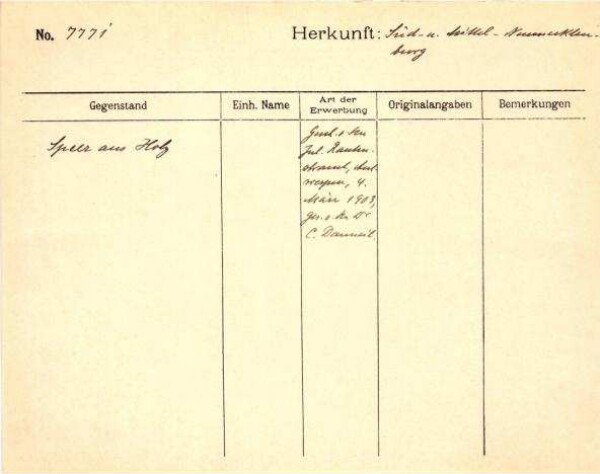 No. 7771
Herkunft: Süd- u. Mittel-Neumecklen-
burg
Gegenstand
Einh. Name
Art der
Erwerbung
Originalangaben
Bemerkungen
Speer aus Holz
Gesch. v. Hrn
Jul. Rauten-
strauch, Ant-
werpen, 4.
März 1903,
ges. v. Hr. Dr
C. Danneil.